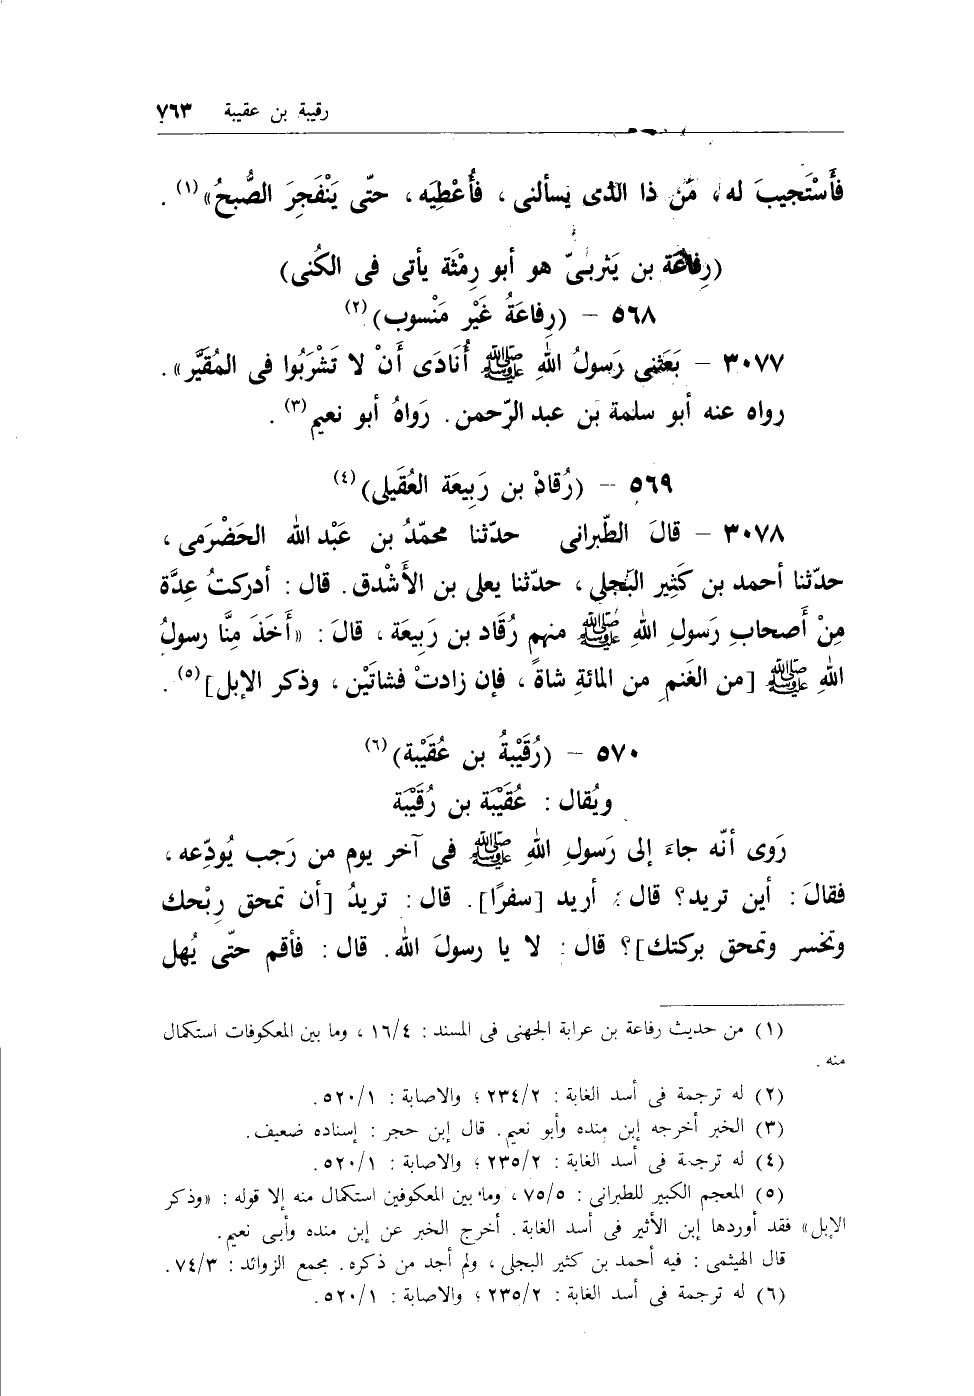 رقيبة بن عقيبة ٧٦٣
فَأَسْتَجيبَ له، مَّن ذا الذى يسألنى ، فأُعْطِيَه، حتّى يَنْفَجِرَ الصُّبحُ» (١) .
(رِفاعَة بن يَثربىّ هو أبو رِمْثَة يأتى فى الكُنى)
٥٦٨ – (رِفاعَةُ غَيْر مَنْسوب) (٢)
٣٠٧٧ – بَعَثنى رَسولُ اللهِ ﷺ أُنَادَى أَنْ لا تَشْرَبُوا فى المُقَيَّر» .
رواه عنه أبو سلمة بن عبد الرّحمن. رَواهُ أبو نعيم (٣) .
٥٦٩ – (رُقادْ بن رَبِيعَة العُقَيلى) (٤)
٣٠٧٨ – قالَ الطّبرانى حدّثنا محمّدُ بن عَبْد الله الحَضْرَمى ،
حدّثنا أحمد بن كَثِير البَجلى ، حدّثنا يعلى بن الأَشْدق. قال : أدركتُ عِدَّة
مِنْ أَصحابِ رَسولِ اللهِ ﷺ منهم رُقَاد بن رَبِيعَة ، قالَ : «أَخَذَ مِنَّا رسولُ
اللهِ ﷺ [من الغَنمِ من المائةِ شاةً ، فإن زادتْ فشاتَيْن ، وذكر الإبل] (٥) .
٥٧٠ – (رُقَيْبةُ بن عُقَيْبة) (٦)
ويُقال : عُقَيْبَة بن رُقَيْبَة
رَوى أنّه جاءَ إلى رَسولِ اللهِ ﷺ فى آخر يوم من رَجب يُودّعه ،
فقالَ : أين تريد؟ قال : أريد [سفرًا]. قال : تريدُ [أن تمحق رِبْحك
وتخسر وتمحق بركتك]؟ قال : لا يا رسولَ الله. قال : فأقم حتّى يُهل
(١) من حديث رفاعة بن عرابة الجهنى فى المسند : ١٦/٤ ، وما بين المعكوفات استكمال
منه .
(٢) له ترجمة فى أسد الغابة : ٢٣٤/٢ ؛ والاصابة : ٥٢٠/١ .
(٣) الخبر أخرجه إبن منده وأبو نعيم. قال إبن حجر : إسناده ضعيف .
(٤) له ترجمة فى أسد الغابة : ٢٣٥/٢ ؛ والاصابة : ٥٢٠/١ .
(٥) المعجم الكبير للطبرانى : ٧٥/٥ ، وما بين المعكوفين استكمال منه إلا قوله : «وذكر
الإبل» فقد أوردها إبن الأثير فى أسد الغابة. أخرج الخبر عن إبن منده وأبى نعيم .
قال الهيثمى : فيه أحمد بن كثير البجلى ، ولم أجد من ذكره. مجمع الزوائد : ٧٤/٣ .
(٦) له ترجمة فى أسد الغابة : ٢٣٥/٢ ؛ والاصابة : ٥٢٠/١ .